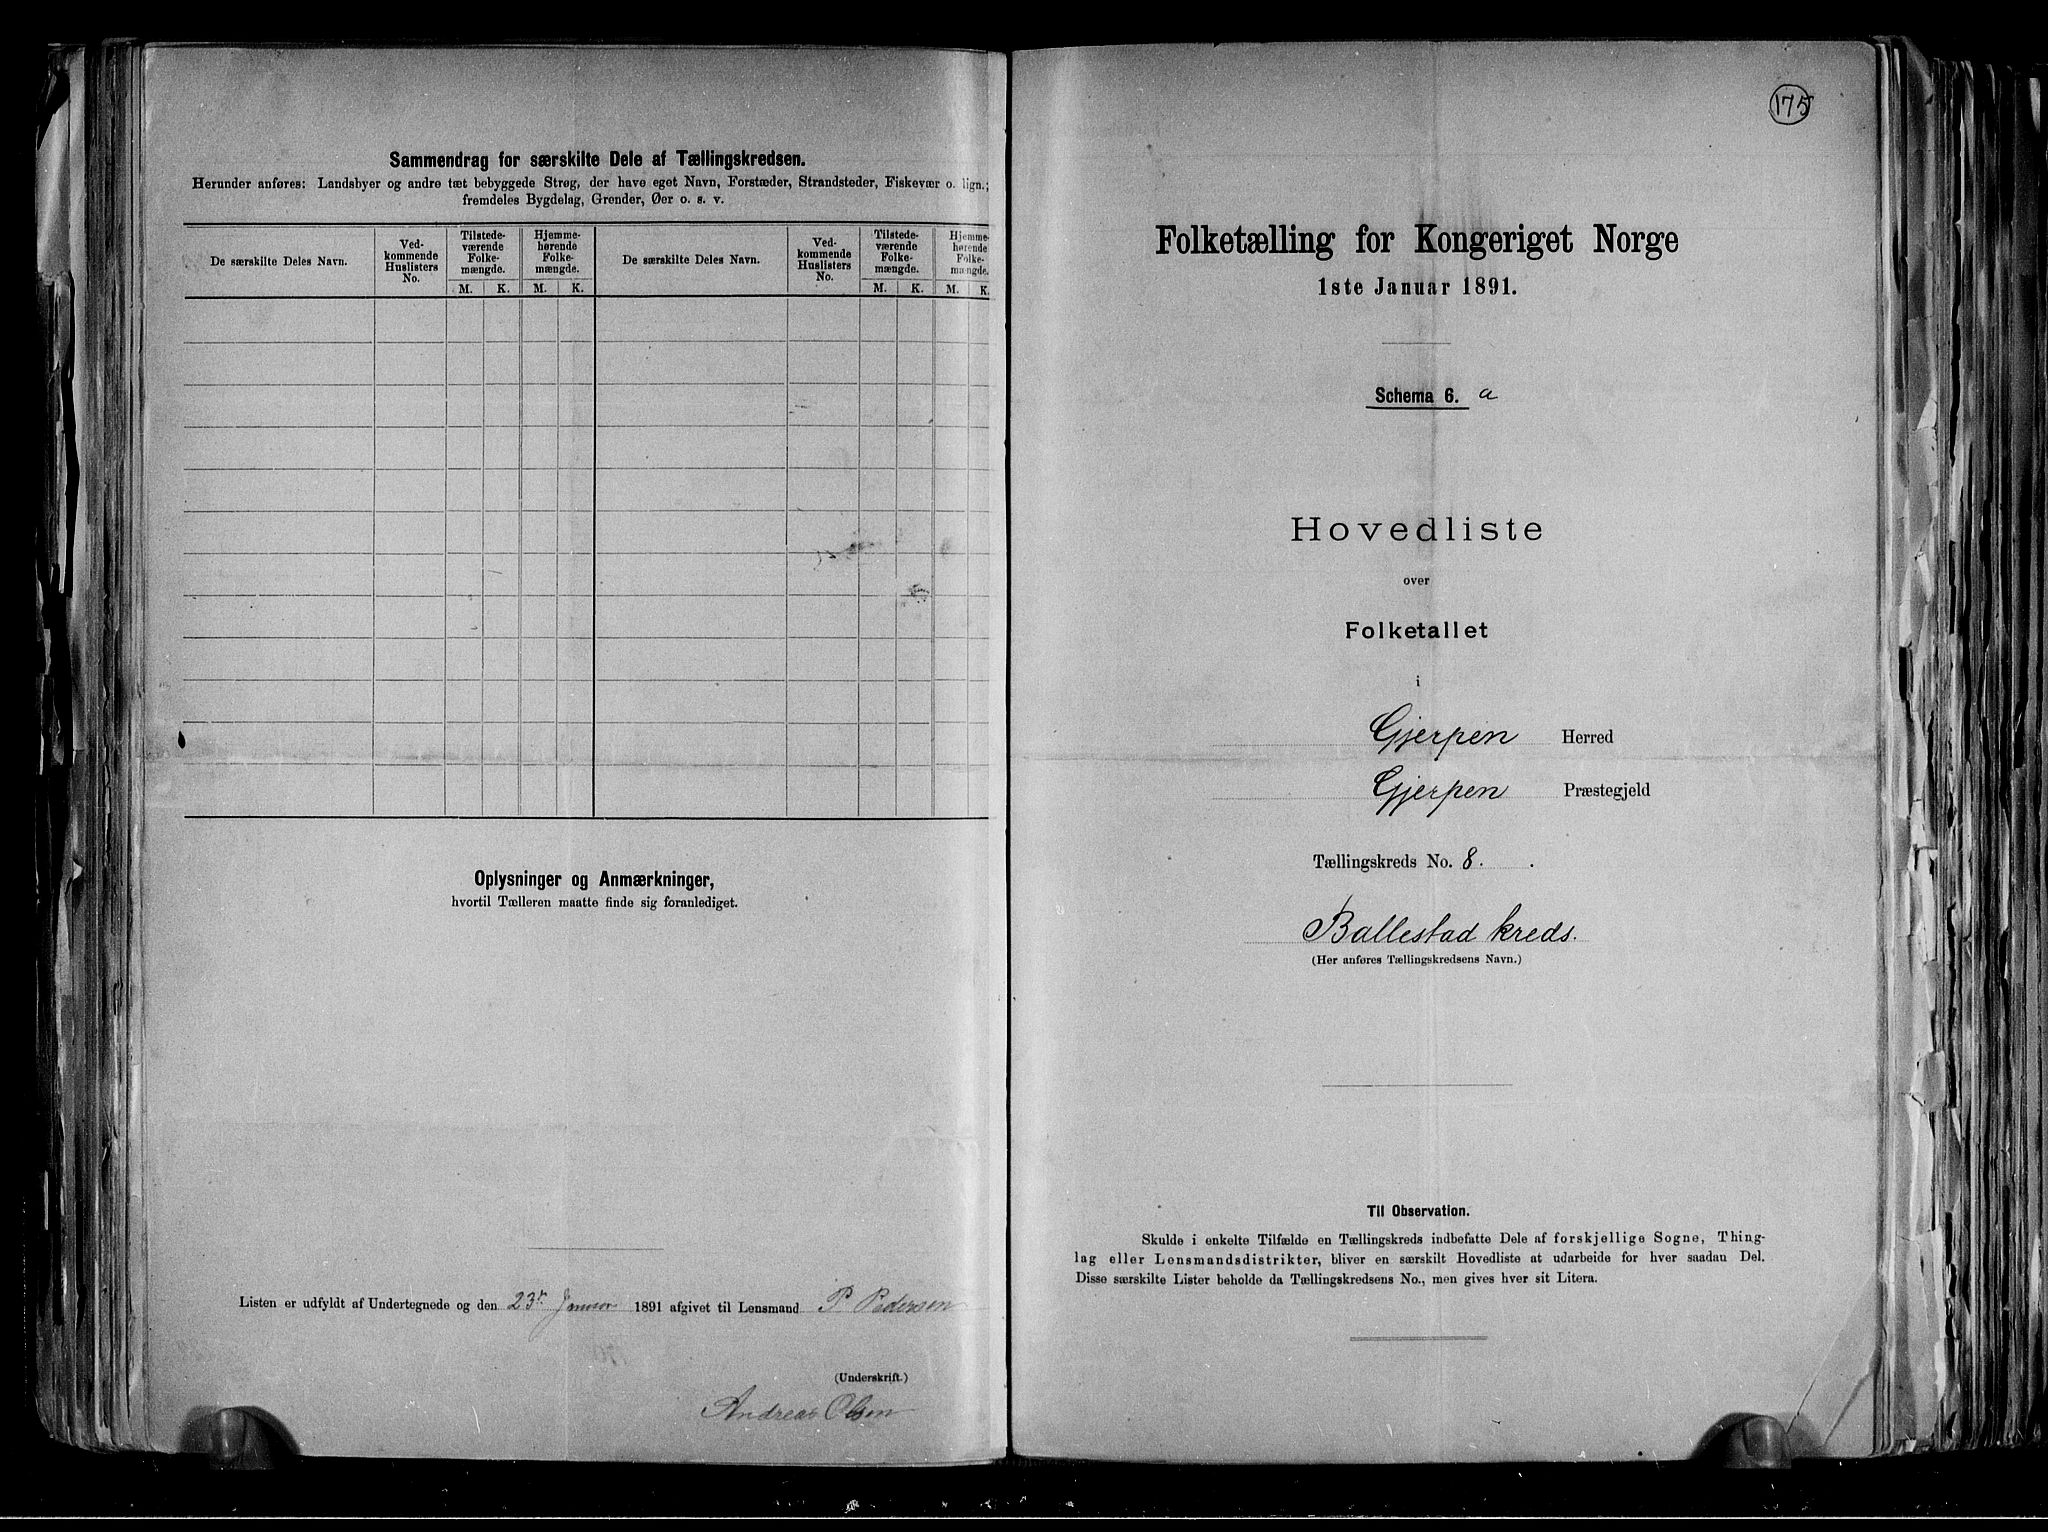 Sammendrag for særskilte Dele af Tællingskredsen.
Herunder anføres: Landsbyer og andre tæt bebyggede Strøg, der have eget Navn, Forstæder, Strandsteder, Fiskevær o. lign.;
fremdeles Bygdelag, Grender, Øer o. s. v.
De særskilte Deles Navn.
Ved-
kommende
Huslisters
No.
Tilstede-
værende
Folke-
mængde.
Hjemme-
hørende
Folke-
mængde.
De særskilte Deles Navn.
Ved-
kommende
Huslisters
No.
Tilstede-
værende
Folke-
mængde.
Hjemme-
hørende
Folke-
mængde.
M. K. M. K. M. K. M. K.
Oplysninger og Anmærkninger,
hvortil Tælleren maatte finde sig foranlediget.
Listen er udfyldt af Undertegnede og den 23de Januar 1891 afgivet til Lensmand P Pedersen
(Underskrift.)
Andreas Olsen
175
Folketælling for Kongeriget Norge
1ste Januar 1891.
Schema 6. a
Hovedliste
over
Folketallet
i
Gjerpen Herred
Gjerpen Præstegjeld
Tællingskreds No. 8.
Ballestad kreds.
(Her anføres Tællingskredsens Navn.)
Til Observation.
Skulde i enkelte Tilfælde en Tællingskreds indbefatte Dele af forskjellige Sogne, Thing-
lag eller Lensmandsdistrikter, bliver en særskilt Hovedliste at udarbeide for hver saadan Del.
Disse særskilte Lister beholde da Tællingskredsens No., men gives hver sit Litera.